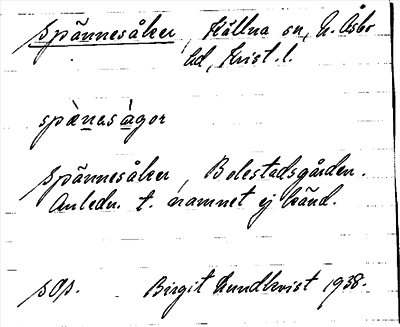 Spännesåker, Källna sn, N. Åsbo
hd, Krist. l.
spànesàgor
Spännesåker, Bolestadsgården.
Anledn. t. namnet ej känd.
sop. Birgit Lundkvist 1938.